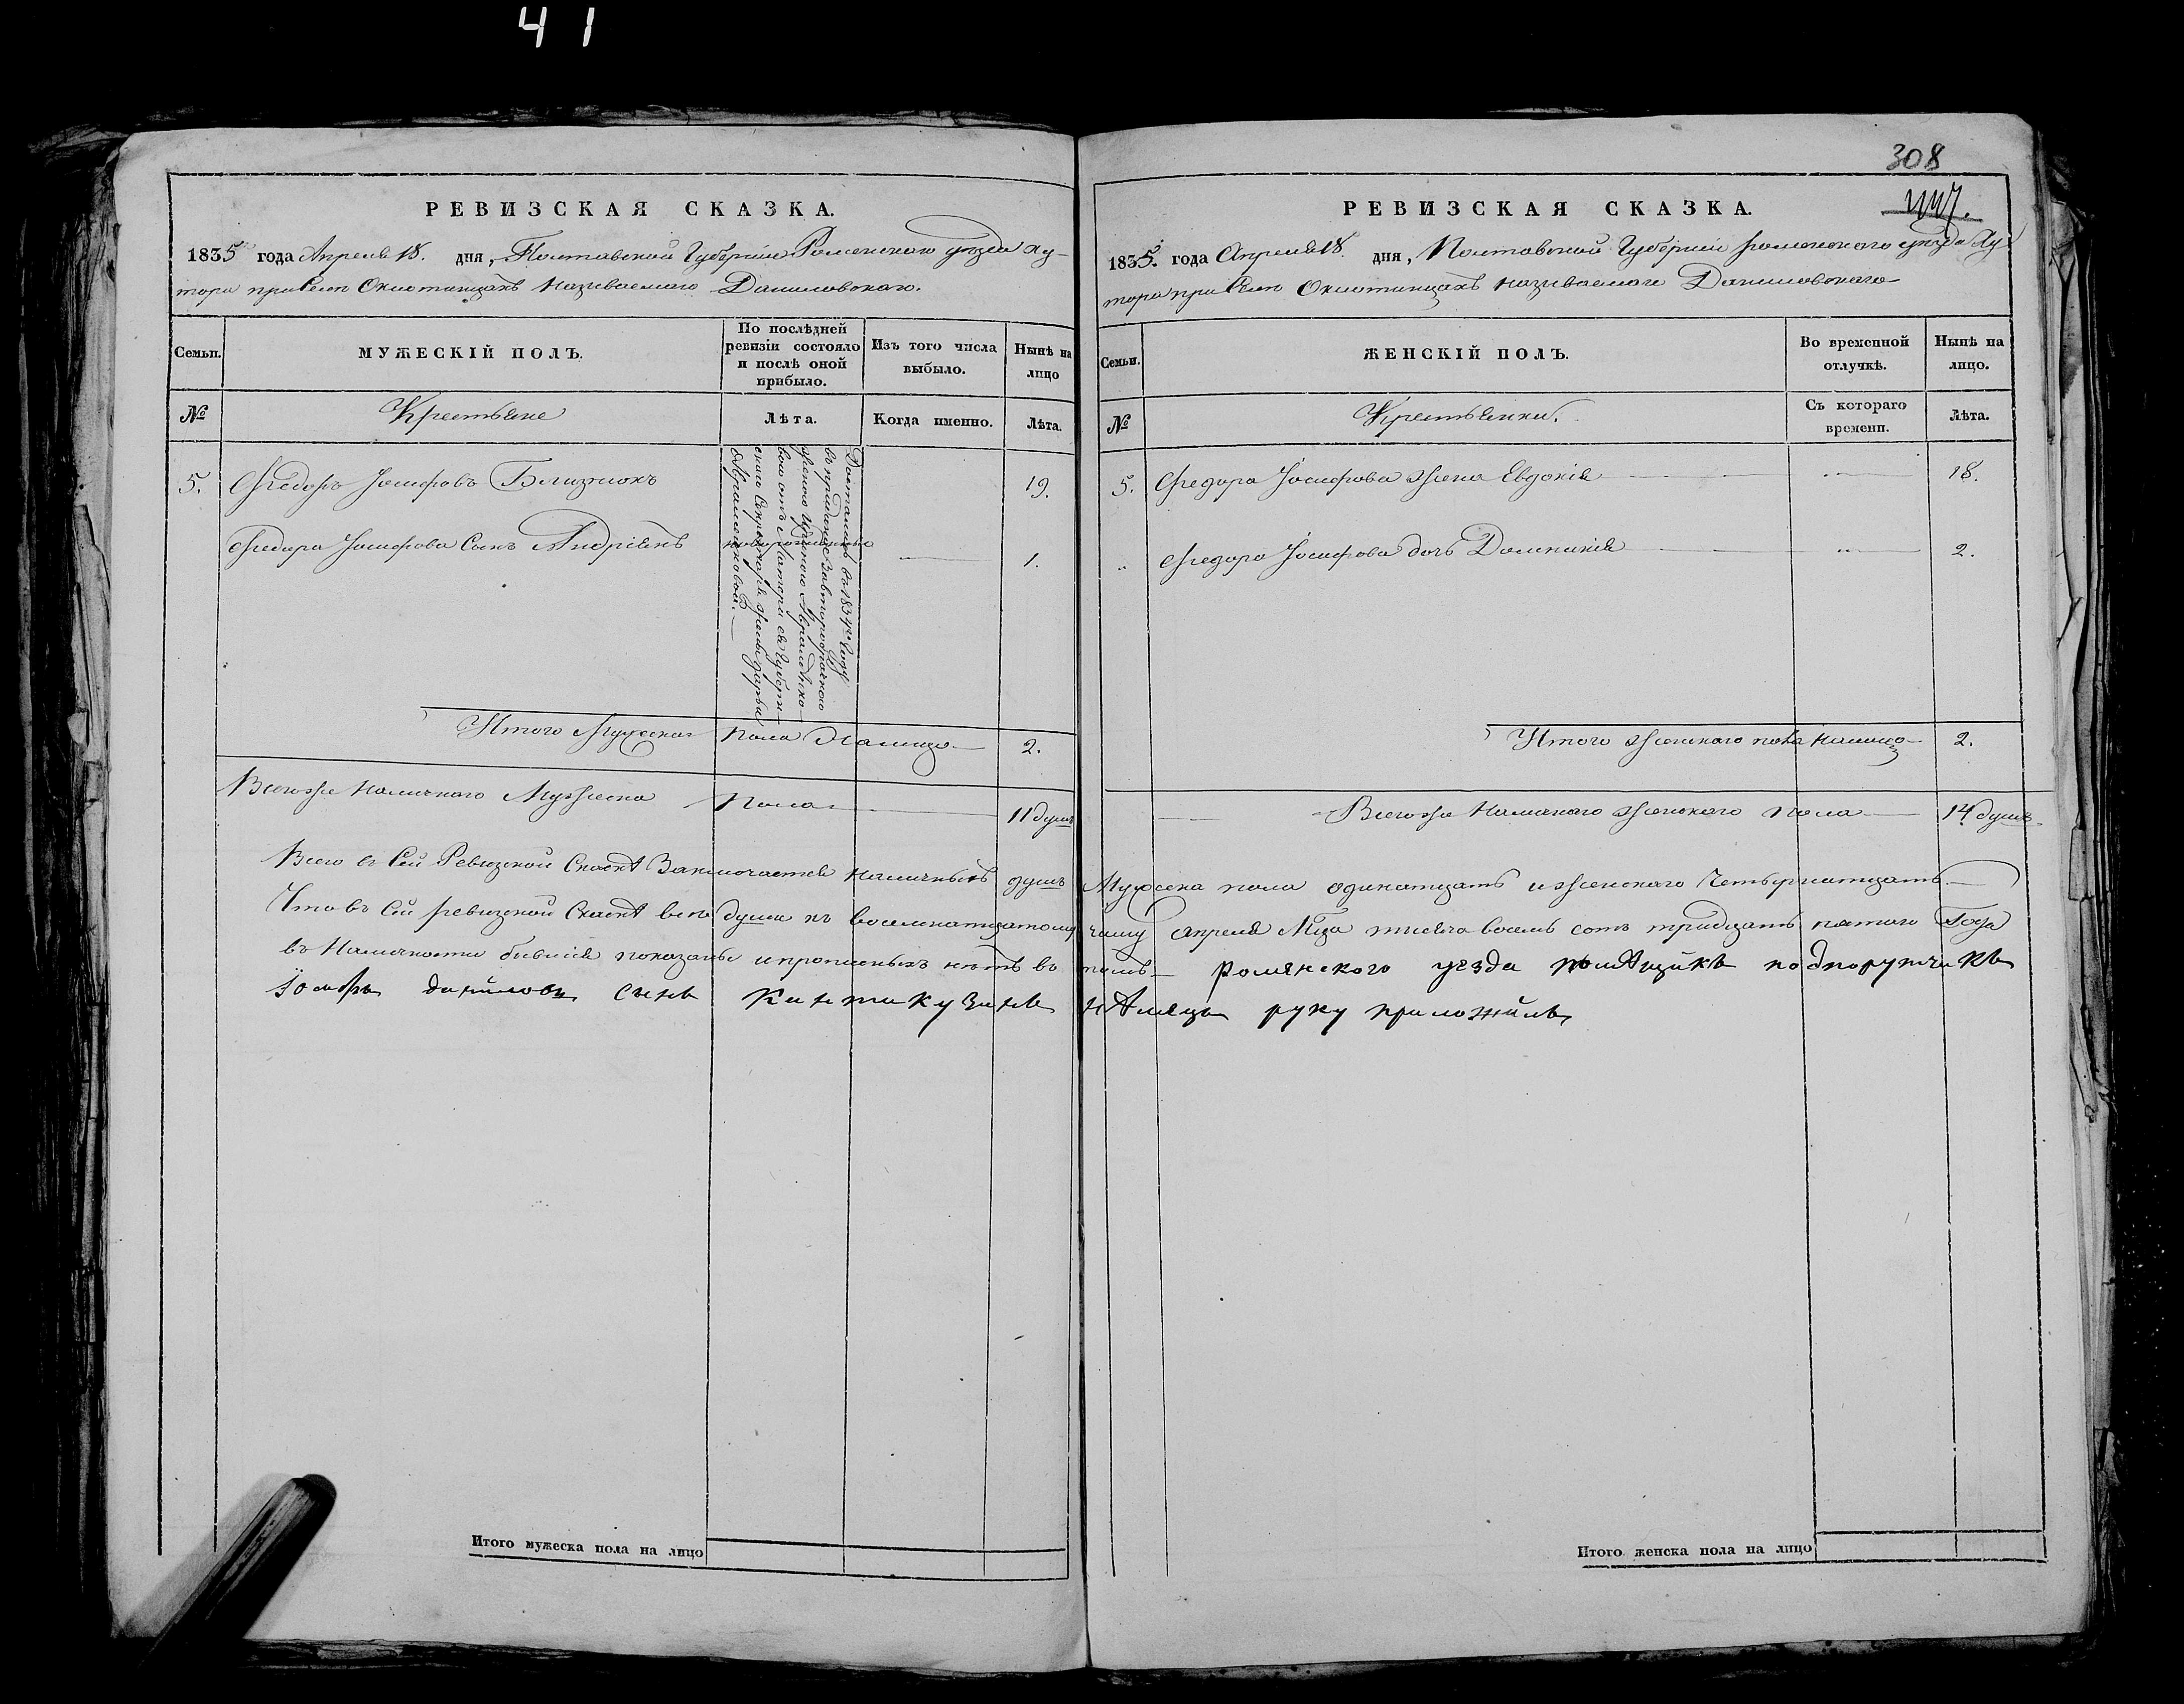 41
РЕВИЗСКАЯ СКАЗКА.
1835 года Апреля 18. дня, Полтавской Губернiи Роменского уезда Ху-
тора при селе Окнотинцахъ называемаго Даниловскаго.
Семьи.
МУЖЕСКIЙ ПОЛЪ.
По послѣдней
ревизiи состояло
и послѣ оной
прибыло.
Изъ того числа
выбыло.
Нынѣ на
лицо
№
Крестьяне
Лѣта.
Когда именно.
Лѣта.
5. Федоръ Iосифовъ Близнюкъ 19.
Федора Iосифова Сынъ Андрiянъ новорожденные 1.
Досталися въ 1834мъ Году
въ приданое
женою
вою отъ Матери ея Губерн-
ского Секретаря жены Дарьи
Итого Мужеска Пола Налицо 2.
Всегоже Наличного Мужеска Пола 11 душъ
308
РЕВИЗСКАЯ СКАЗКА.
1835. года Апреля 18. дня, Полтавской Губернiи роменского уезда Ху-
тора при селе Окнотинцахъ называемаго Даниловскаго
Семьи.
ЖЕНСКIЙ ПОЛЪ.
Во временной
отлучкѣ.
Нынѣ на
лицо.
№
Крестьянки.
Съ котораго
времени.
Лѣта.
5. Федора Iосифова жена Евдокiя 18.
„ Федора Iосифова дочь Домникiя 2.
Итого женскаго пола налицо 2.
Всегоже Наличнаго женскаго пола 14 душъ
Всего въ Сей Ревизской Сказкѣ Заключается наличныхъ душъ Мужеска пола одинатцать и женскаго Четырнатцать
Что въ Сей ревизской Сказкѣ все души къ восемнатцатому числу апреля Мца тысяча восемь сотъ тридцать пятого Года
въ Наличности бывшiя показаны и прописныхъ нѣтъ въ томъ роменского уезда помѣщикъ подпорутчикъ
данiиловъ сынъ руку приложилъ
Итого мужеска пола на лицо
Итого женска пола на лицо